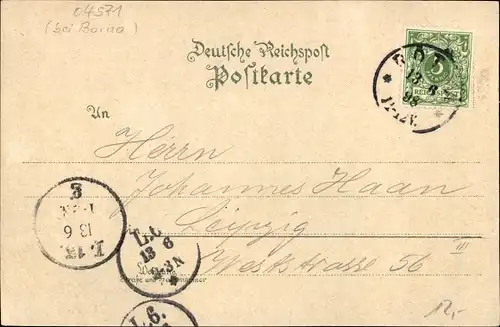 04571
(bei Borna)
Deutsche Reichspost
Postkarte
An
Herrn
Johannes Haan
Leipzig
Weststrasse 56 III
RÖT
13 6
98
11-12V.
L. 13.
13 6
L.6
13 6
2-3N
L.6.
12,-